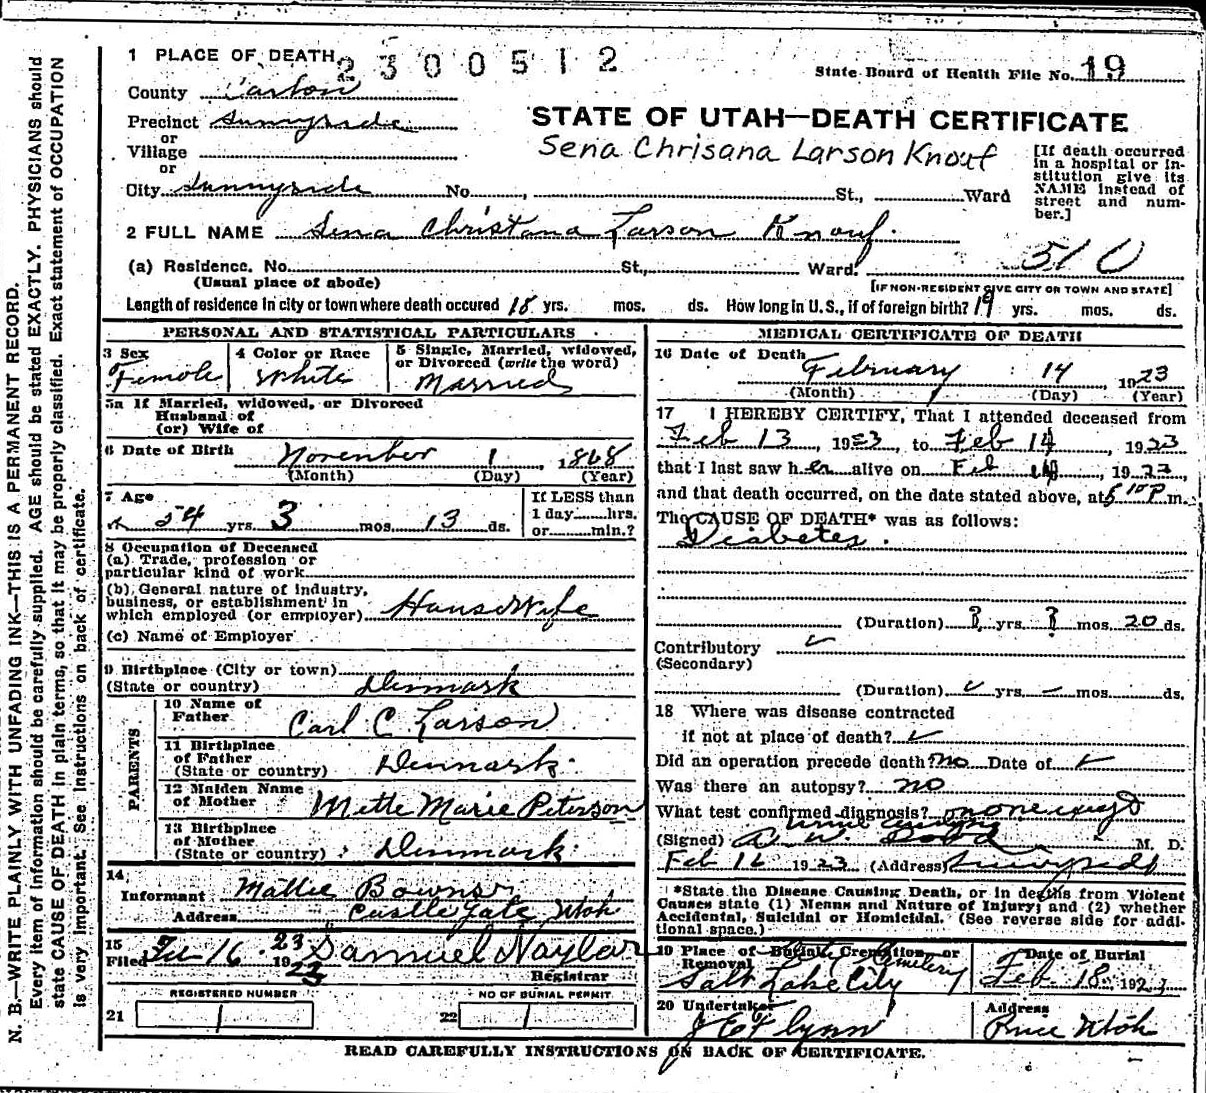 1 PLACE OF DEATH 2300512
State Board of Health File No. 19
County Carbon
Precinct Sunnyside
or
Village
or
City Sunnyside No. St., Ward
STATE OF UTAH—DEATH CERTIFICATE
Sena Chrisana Larson Knouf
[If death occurred
in a hospital or in-
stitution give its
NAME instead of
street and num-
ber.]
2 FULL NAME Sena Christana Larson Knouf.
(a) Residence. No. St., Ward. 510
(Usual place of abode)
[IF NON-RESIDENT GIVE CITY OR TOWN AND STATE]
Length of residence in city or town where death occured 18 yrs. mos. ds. How long in U. S., if of foreign birth? 19 yrs. mos. ds.
PERSONAL AND STATISTICAL PARTICULARS
3 Sex
Female
4 Color or Race
White
5 Single, Married, widowed,
or Divorced (write the word)
Married
5a If Married, widowed, or Divorced
Husband of
(or) Wife of
6 Date of Birth November 1, 1868
(Month) (Day) (Year)
7 Age
54 yrs. 3 mos. 13 ds.
If LESS than
1 day hrs.
or min.?
8 Occupation of Deceased
(a) Trade, profession or
particular kind of work
(b) General nature of industry,
business, or establishment in
which employed (or employer) HouseWife
(c) Name of Employer
9 Birthplace (City or town)
(State or country) Denmark
PARENTS
10 Name of
Father Carl C Larson
11 Birthplace
of Father
(State or country) Denmark
12 Maiden Name
of Mother Mette Marie Peterson
13 Birthplace
of Mother
(State or country) Denmark
14
Informant Mattie Bowns
Address Castle Gate Utah
15
Filed Feb 16 1923 Samuel Naylor
23
Registrar
REGISTERED NUMBER
21
NO OF BURIAL PERMIT
22
MEDICAL CERTIFICATE OF DEATH
16 Date of Death February 14, 1923
(Month) (Day) (Year)
17 I HEREBY CERTIFY, That I attended deceased from
Feb 13, 1923, to Feb 14, 1923
that I last saw her alive on Feb 14, 1923,
and that death occurred, on the date stated above, at 5 10 P. m.
The CAUSE OF DEATH* was as follows:
Diabetes.
(Duration) ? yrs. ? mos. 20 ds.
Contributory
(Secondary)
(Duration) yrs. – mos. ds.
18 Where was disease contracted
if not at place of death?
Did an operation precede death? no Date of
Was there an autopsy? no
What test confirmed diagnosis? none except
urine
(Signed) A. W. M. D.
Feb 16 1923 (Address) Sunnyside
*State the Disease Causing Death, or in deaths from Violent
Causes state (1) Means and Nature of Injury; and (2) whether
Accidental, Suicidal or Homicidal. (See reverse side for addi-
tional space.)
19 Place of Burial, Cremation, or
Removal City Cemetery
Salt Lake City
Date of Burial
Feb. 18, 1923
20 Undertaker
J E Flynn
Address
Price Utah
READ CAREFULLY INSTRUCTIONS ON BACK OF CERTIFICATE.
N. B.—WRITE PLAINLY WITH UNFADING INK—THIS IS A PERMANENT RECORD.
Every item of information should be carefully supplied. AGE should be stated EXACTLY. PHYSICIANS should
state CAUSE OF DEATH in plain terms, so that it may be properly classified. Exact statement of OCCUPATION
is very important. See instructions on back of certificate.